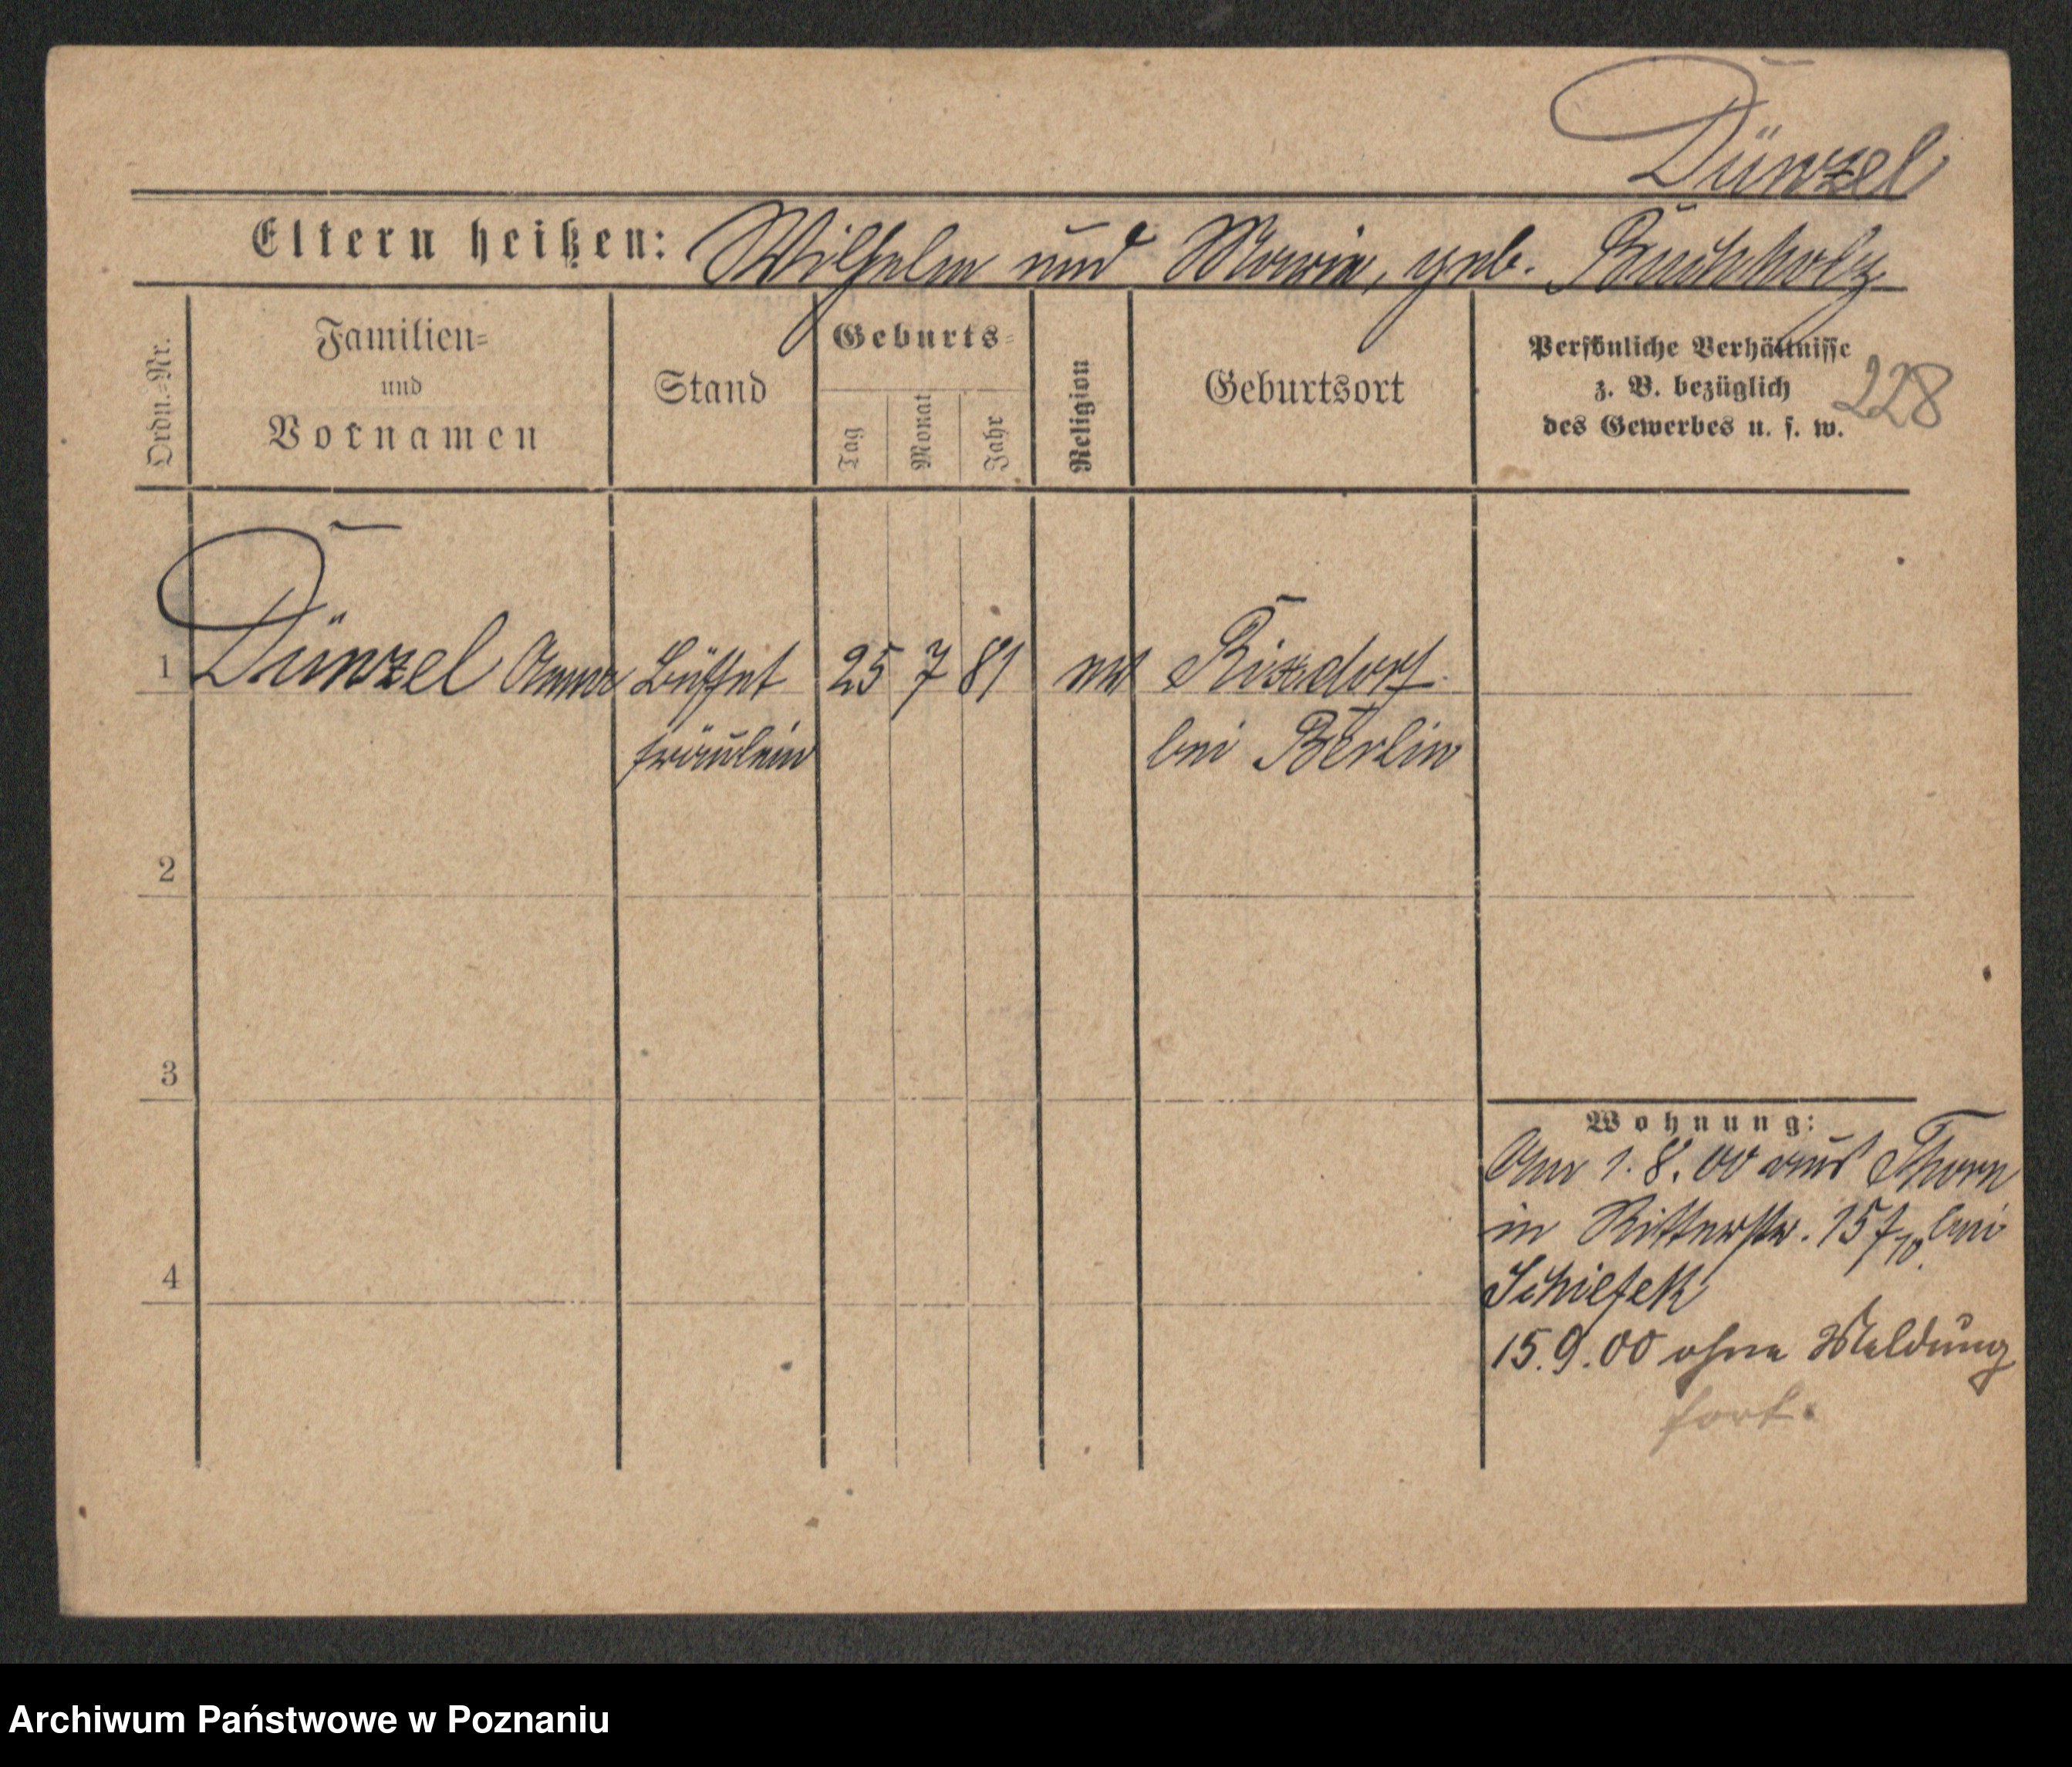 Dünzel
Eltern heißen: Wilhelm und Marie, geb. Buchholz
Ordn.-Nr.
Familien-
und
Vornamen
Stand
Geburts-
Tag
Monat
Jahr
Religion
Geburtsort
Persönliche Verhältnisse
z. B. bezüglich
des Gewerbes u. s. w.
228
1 Dünzel Anna Büffet 25 7 81 Rixdorf
fräulein bei Berlin
2
3
4
Wohnung:
1.8.00 aus Thorn
in Ritterstr. 15 bei
15.9.00 ohne Meldung
fort.
Archiwum Państwowe w Poznaniu